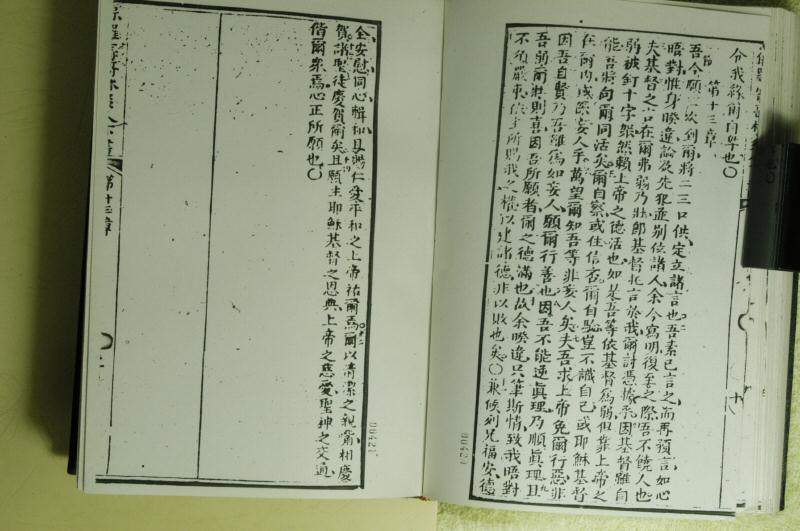 分我緣爾自卑也〇
第十三章
吾今願三次到爾將二三口供定立諸言也吾素已言之而再預言如心
晤對惟身暌違論及先犯並別位諸人余今寫明復至之際吾不饒人也
夫基督之口在爾弗弱乃壯即基督托言於我爾討憑據永因基督雖自
弱被釘十字架然賴上帝之德活也如是吾等依基督爲弱但靠上帝之
能吾將向爾同活矣爾自察或住信否爾自驗豈不識自己或耶穌基督
在爾內或係妄人乎萬望爾知吾等非妄人矣夫吾求上帝免爾行惡非
因吾自賢乃吾雖爲如妄人願爾行善也因吾不能逆眞理乃順眞理且
吾弱爾壯則喜因吾所願者爾之德滿也故余暌違只筆斯情致我晤對
不須嚴東依主所賜我之權以建諸德非以敗也矣〇兼候列兄福安德
00420
全安慰同心輯和且賜仁愛平和之上帝祐爾焉爾以清潔之親嘴相慶
賀諸聖徒慶賀爾矣且願主耶穌基督之恩典上帝之慈愛聖神之交通
偕爾衆焉心正所願也〇
00421
第十三章